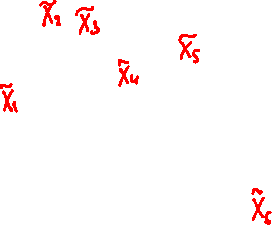 x̃₂
x̃₃
x̃₅
x̃₄
x̃₁
x̃₆